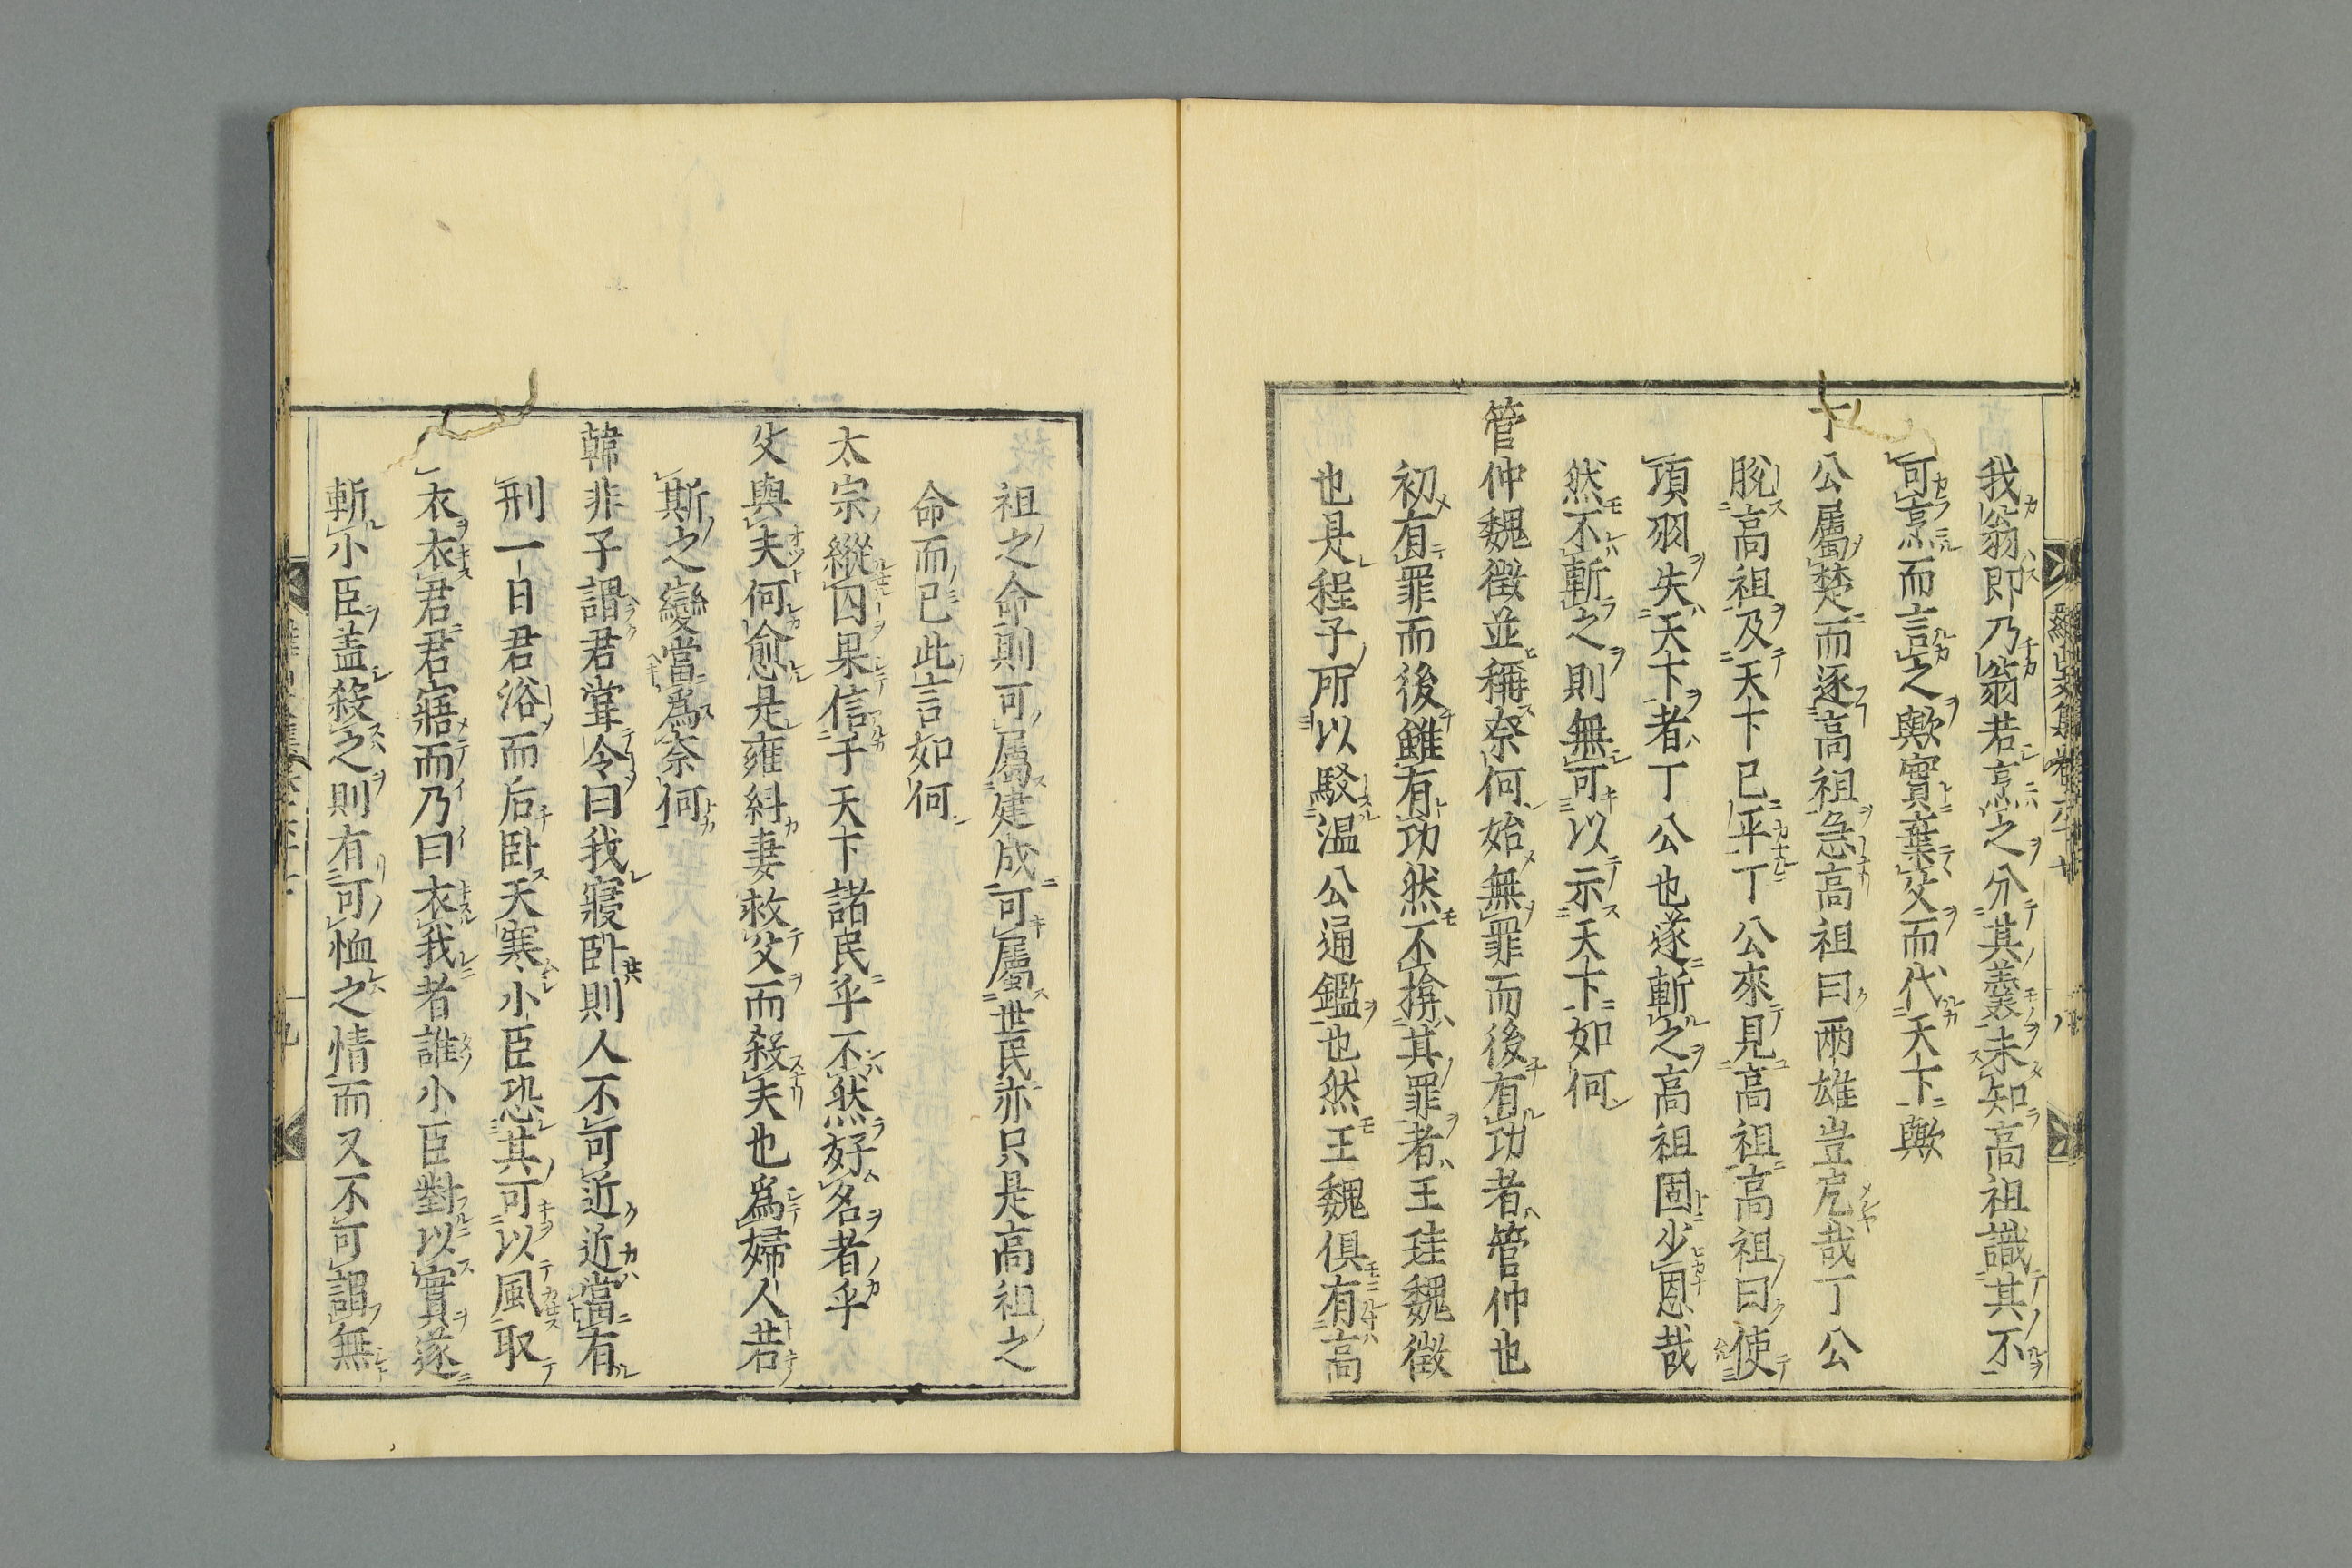 我翁即乃翁若烹之分其羹未知高祖識其不
可烹而言之歟實棄父而代天下歟
丁公屬楚而逐高祖急高祖曰兩雄豈戹哉丁公
脫高祖及天下已平丁公來見高祖高祖曰使
項羽失天下者丁公也遂斬之高祖固少恩哉
然不斬之則無可以示天下如何
管仲魏徵並稱奈何始無罪而後有功者管仲也
初有罪而後雖有功然不揜其罪者王珪魏徵
也是程子所以駁温公通鑑也然王魏俱有高
祖之命則可屬建成可屬世民亦只是高祖之
命而已此言如何
太宗縱囚果信于天下諸民乎不然好名者乎
父與夫何愈是雍糾妻救父而殺夫也爲婦人若
斯之變當爲奈何
韓非子謂君掌令曰我寢臥則人不可近近當有
刑一日君浴而后臥天寒小臣恐其可以風取
衣衣君君寤而乃曰衣我者誰小臣對以實遂
斬小臣盖殺之則有可恤之情而又不可謂無